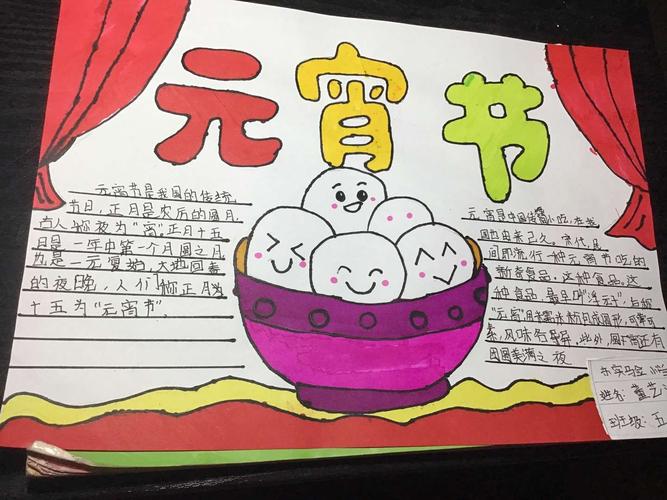 元宵节
元宵节是我国的传统
节日,正月是农历的圆月
古人称夜为"宵"正月十五
日是一年中第一个月圆之月
也是一元复始,大地回春
的夜晚,人们称正月为
十五为"元宵节".
元宵是中国传统小吃,在我
国由来已久。宋代,民
间即流行一种元宵节吃的
新奇食品.这种食品,这
种食品,最早叫"浮元子",后称
"元宵",用糯米粉包成圆形,可荤可
素,风味各异.此外,
团圆美满之夜
姓名:董艺
班级:五